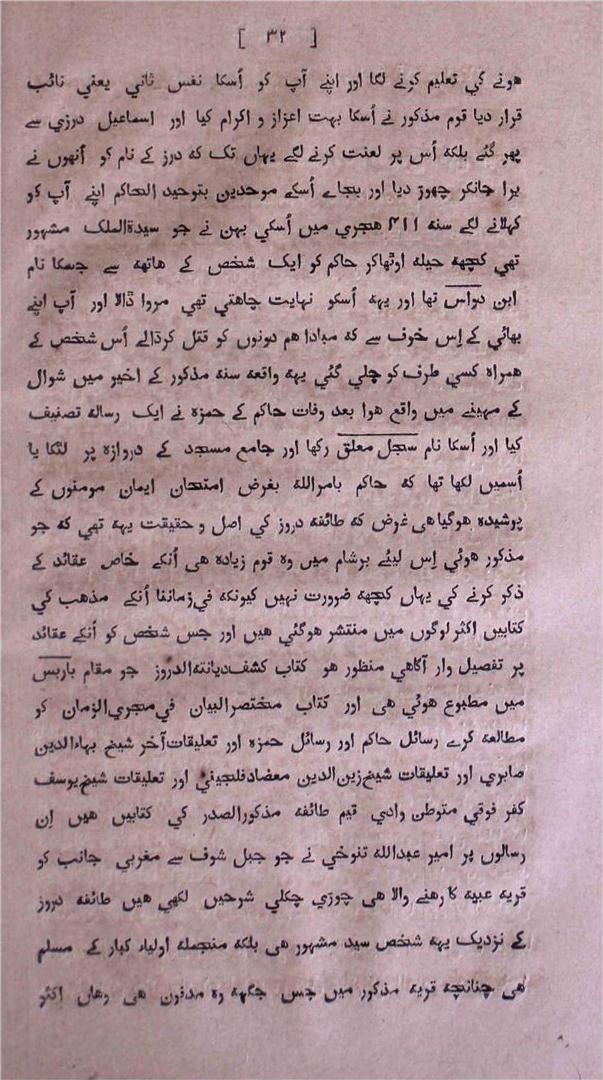 [ ۳۲ ]
ھونے کي تعلیم کرنے لگا اور اپنے آپ کو اُسکا نفس ثاني یعني نائب
قرار دیا قوم مذکور نے اُسکا بہت اعزاز و اکرام کیا اور اسماعیل درزي سے
پھر گئے بلکہ اُس پر لعنت کرنے لگے یہاں تک کہ درز کے نام کو اُنھوں نے
برا جانکر چھوڑ دیا اور بجاے اُسکے موحدین بتوحید الحاکم اپنے آپ کو
کہلانے لگے سنہ ۴۱۱ ھجري میں اُسکي بہن نے جو سیدۃالملک مشہور
تھي کچھہ حیلہ اوٹھاکر حاکم کو ایک شخص کے ھاتھہ سے جسکا نام
ابن دواس تھا اور یہہ اُسکو نہایت چاھتي تھي مروا ڈالا اور آپ اپنے
بھائي کے اِس خوف سے کہ مبادا ھم دونوں کو قتل کرڈالے اُس شخص کے
ھمراہ کسي طرف کو چلي گئي یہہ واقعہ سنہ مذکور کے اخیر میں شوال
کے مہینے میں واقع ھوا بعد وفات حاکم کے حمزہ نے ایک رسالہ تصنیف
کیا اور اُسکا نام سجل معلق رکھا اور جامع مسجد کے دروازہ پر لٹکا یا
اُسمیں لکھا تھا کہ حاکم بامراللہ بغرض امتحان ایمان مومنوں کے
پوشیدہ ھوگیا ھی غرض کہ طائفہ دروز کي اصل و حقیقت یہہ تھي کہ جو
مذکور ھوئي اِس لیئے برشام میں وہ قوم زیادہ ھی اُنکے خاص عقائد کے
ذکر کرنے کي یہاں کچھہ ضرورت نہیں کیونکہ في زماننا اُنکے مذھب کي
کتابیں اکثر لوگوں میں منتشر ھوگئي ھیں اور جس شخص کو اُنکے عقائد
پر تفصیل وار آگاھي منظور ھو کتاب کشف دیانتہ الدروز جو مقام باربس
میں مطبوع ھوئي ھی اور کتاب مختصر البیان في مجري الزمان کو
مطالعہ کرے رسائل حاکم اور رسائل حمزہ اور تعلیقات آخر شیخ بہاءالدین
صابري اور تعلیقات شیخ زین الدین معضاد فلجیني اور تعلیقات شیخ یوسف
کفر فوقي متوطن وادي قیم طائفہ مذکورالصدر کي کتابیں ھیں اِن
رسالوں پر امیر عبداللہ تنوخي نے جو جبل شوف سے مغربي جانب کو
قریہ عبیہ کا رھنے والا ھی چوڑي چکلي شرحیں لکھي ھیں طائفہ دروز
کے نزدیک یہہ شخص سید مشہور ھی بلکہ منجملہ اولیاء کبار کے مسلم
ھی چنانچہ قریہ مذکور میں جس جگہہ وہ مدفون ھی وھاں اکثر